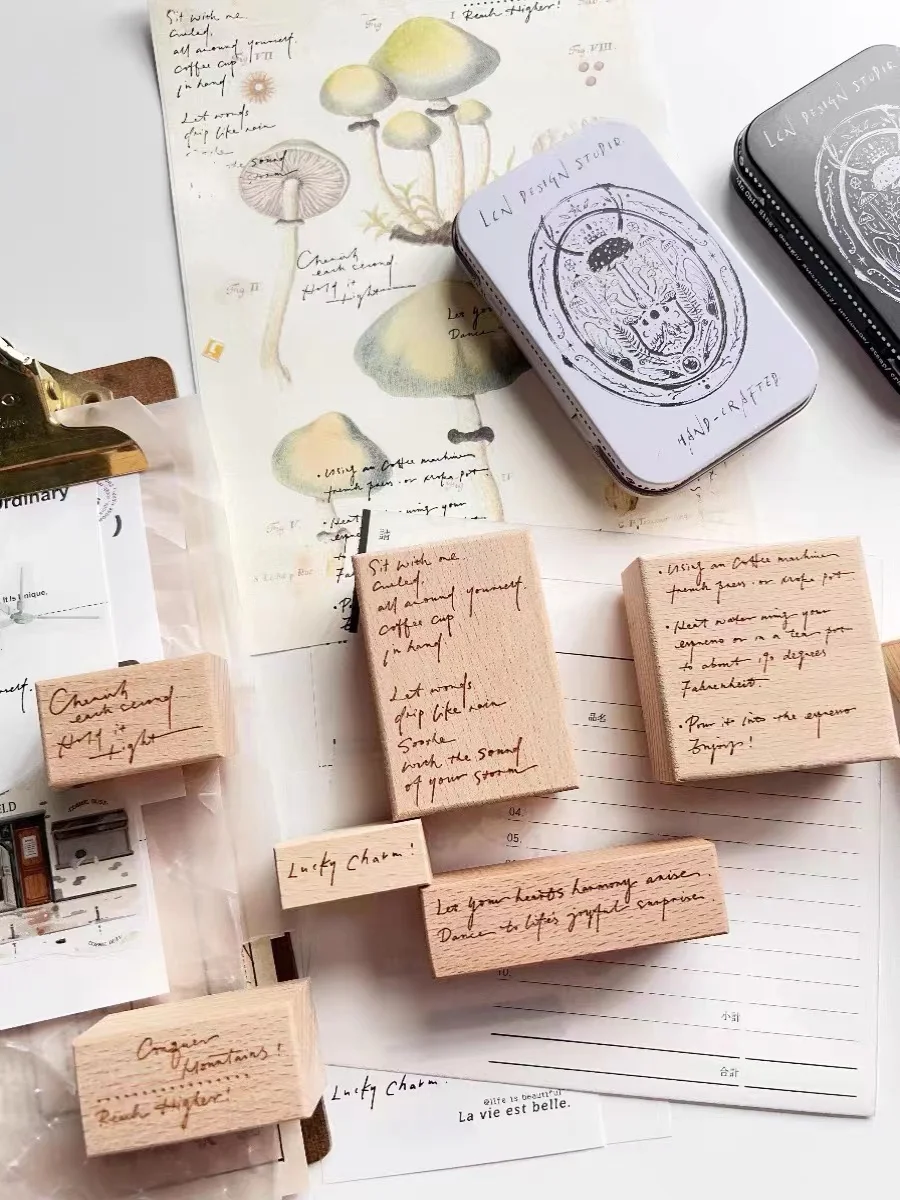 Sit with me
curled,
all around yourself.
coffee cup
in hand
Let words
drip like rain
the sound
storm
Fig VII
Fig
I
Reach Higher!
Fig VIII.
Cherish
each second
Hold it
tight
Fig. II
Let you
Dance
• Using an Coffee machine
french press · or moka pot
Fig V.
LCN DESIGN STUDIO.
HAND-CRAFTED
LCN DESIGN STUDIO.
ordinary
It is unique.
Sit with me
curled,
all around yourself.
coffee cup
in hand
Let words
drip like rain
Soothe
with the sound
of your storm
• Using an Coffee machine
french press · or moka pot
• Heat water using your
espresso or in a tea pot
to about 190 degrees
Fahrenheit.
• Pour it into the espresso
Enjoys!
Cherish
each second
Hold it
tight
品名
04.
05.
Lucky Charm!
Let your hearts harmony arise.
Dance to life's joyful surprise
10.
小計
合計
Conquer
Mountains!
Reach Higher!
Lucky Charm!
@life is beautiful
La vie est belle.